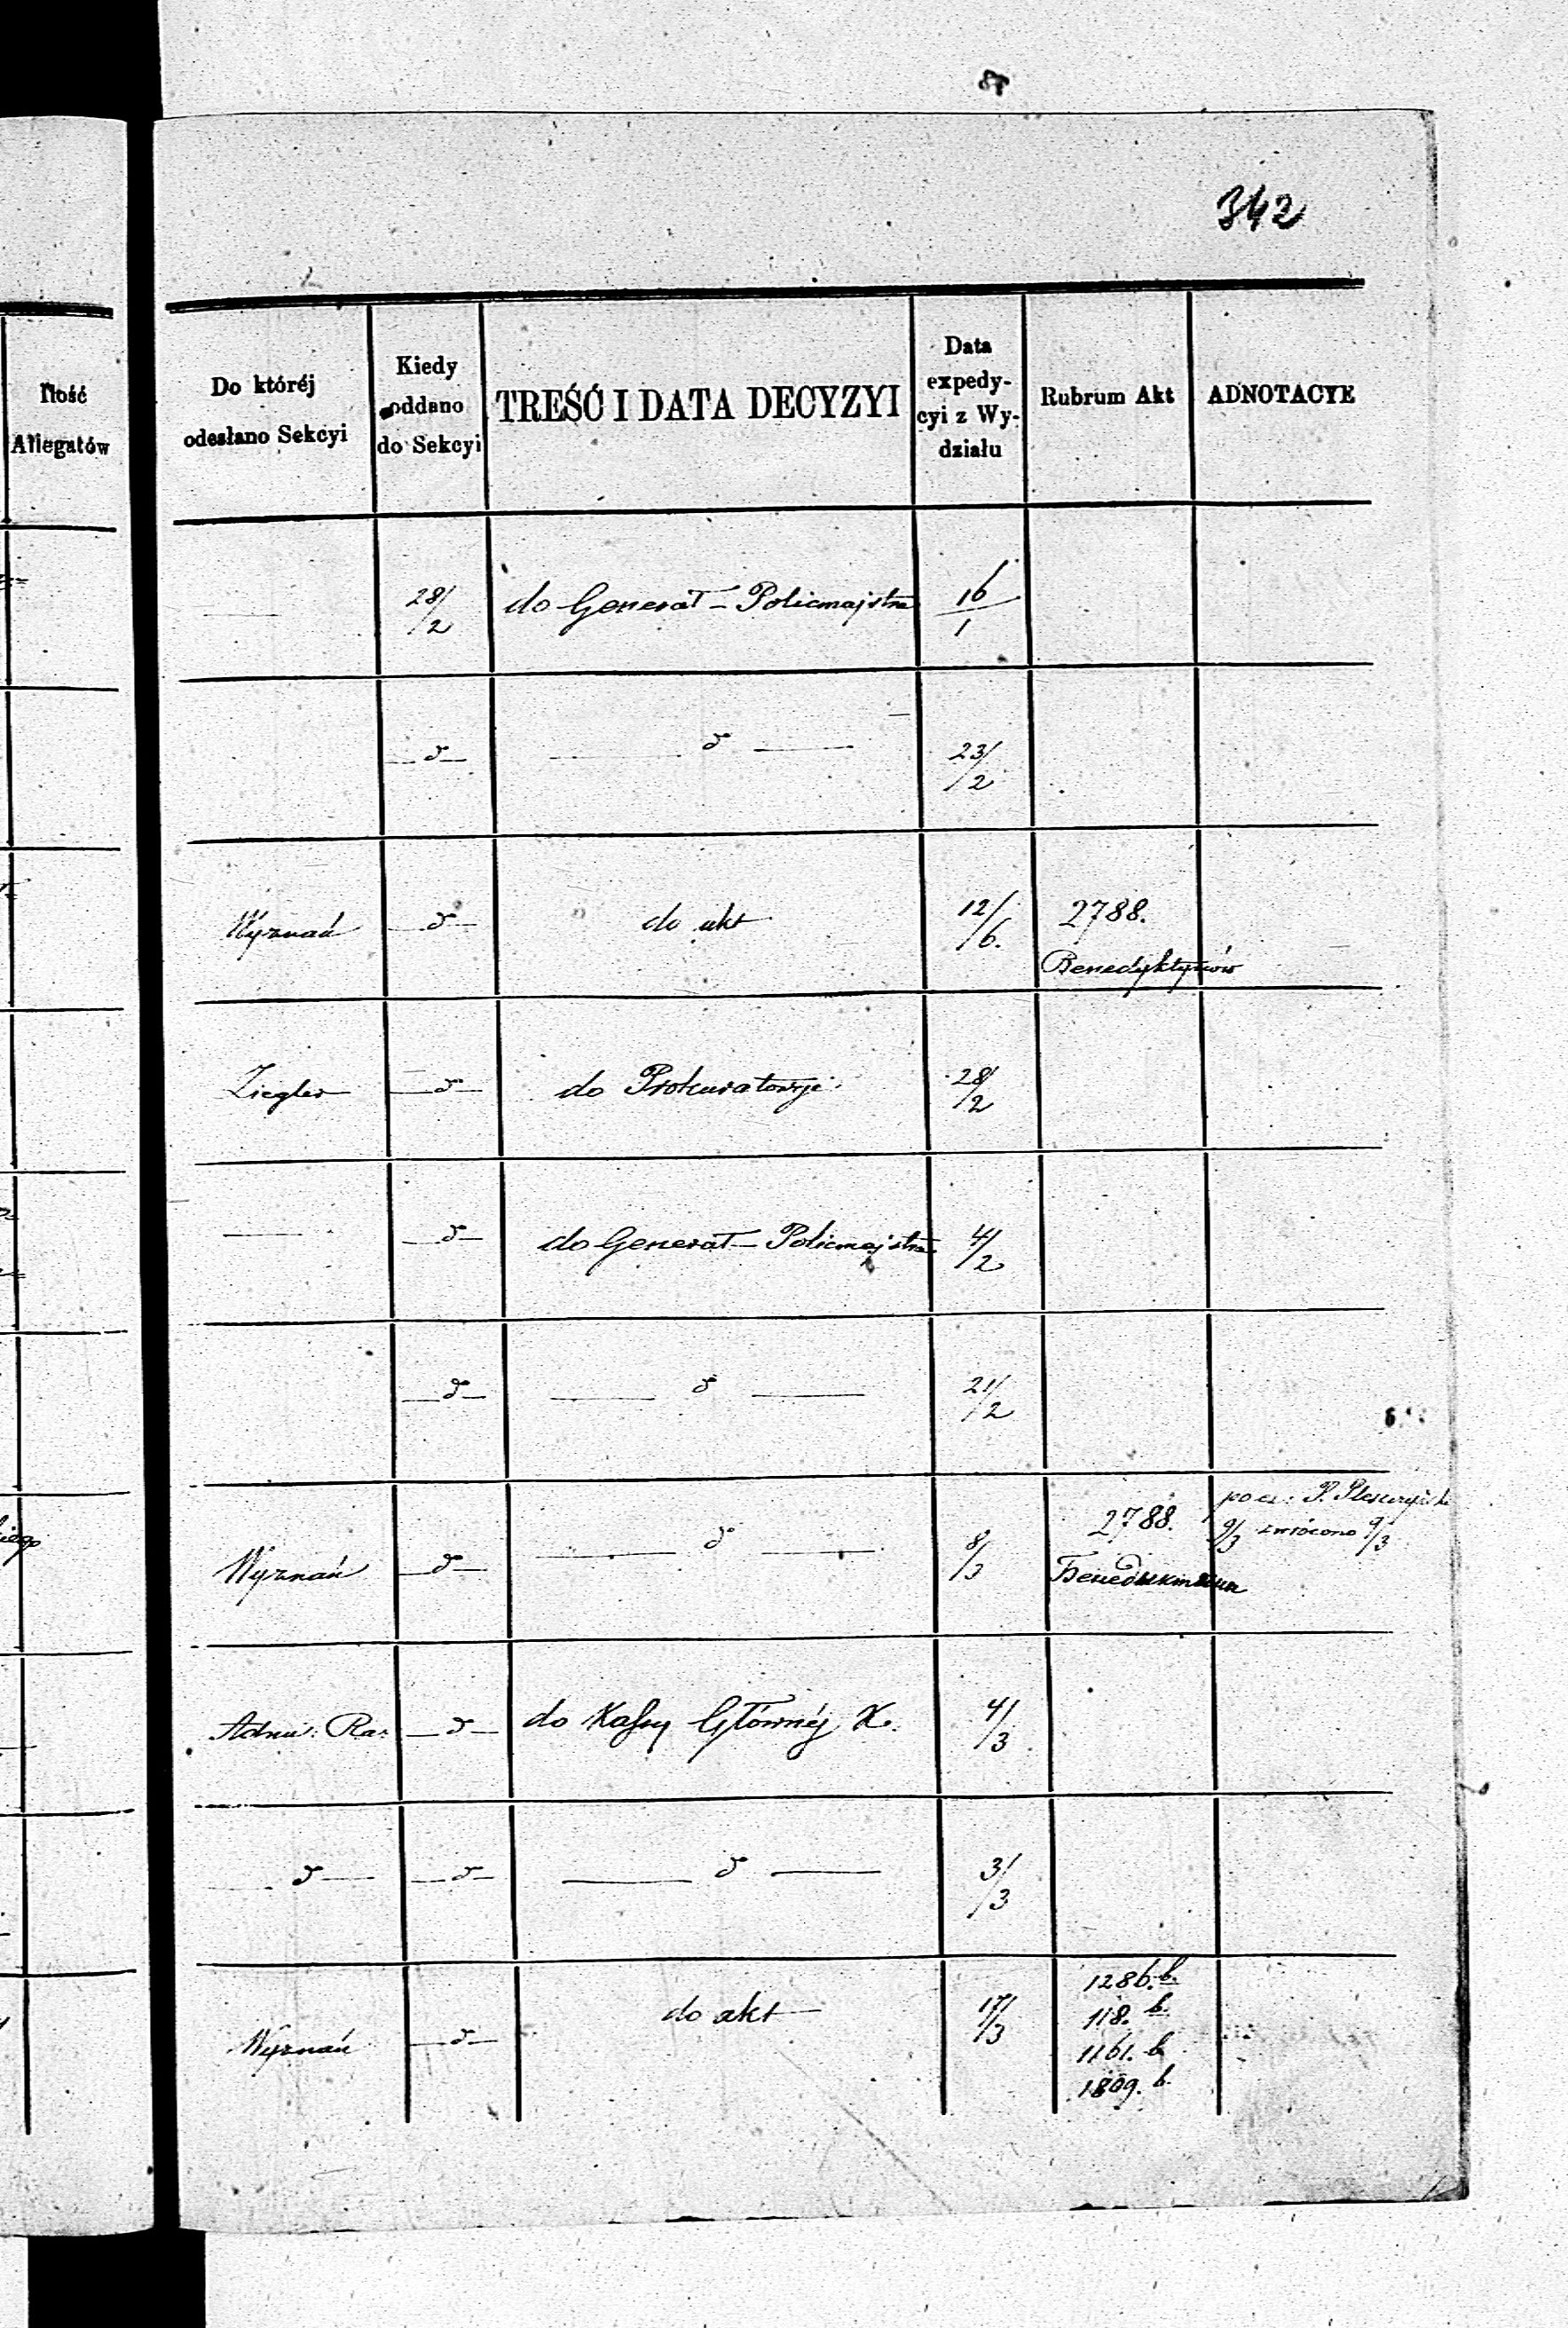 342
Ilość
Allegatów
Do któréj
odesłano Sekcyi
Kiedy
oddano
do Sekcyi
TREŚĆ I DATA DECYZYI
Data
expedy-
cyi z Wy-
działu
Rubrum Akt
ADNOTACYE
28/2 do Generał-Policmajstra 16/1
— d — — d — 23/2
Wyznań — d — do akt 12/6. 2788.
Benedyktynów
Ziegler — d — do Prokuratoryi 28/2
— — d — do Generał-Policmajstra 4/2
— d — — d — 21/2
Wyznań — d — — d — 8/3 2788.
Бенедиктина
9/3 zwrócono 9/3
Adm: Ra: — d — do Kassy Głównéj K. 4/3
— d — — d — — d — 3/3
Wyznań — d — do akt 17/3 1286. b.
118. b.
1161. b
1809. b.